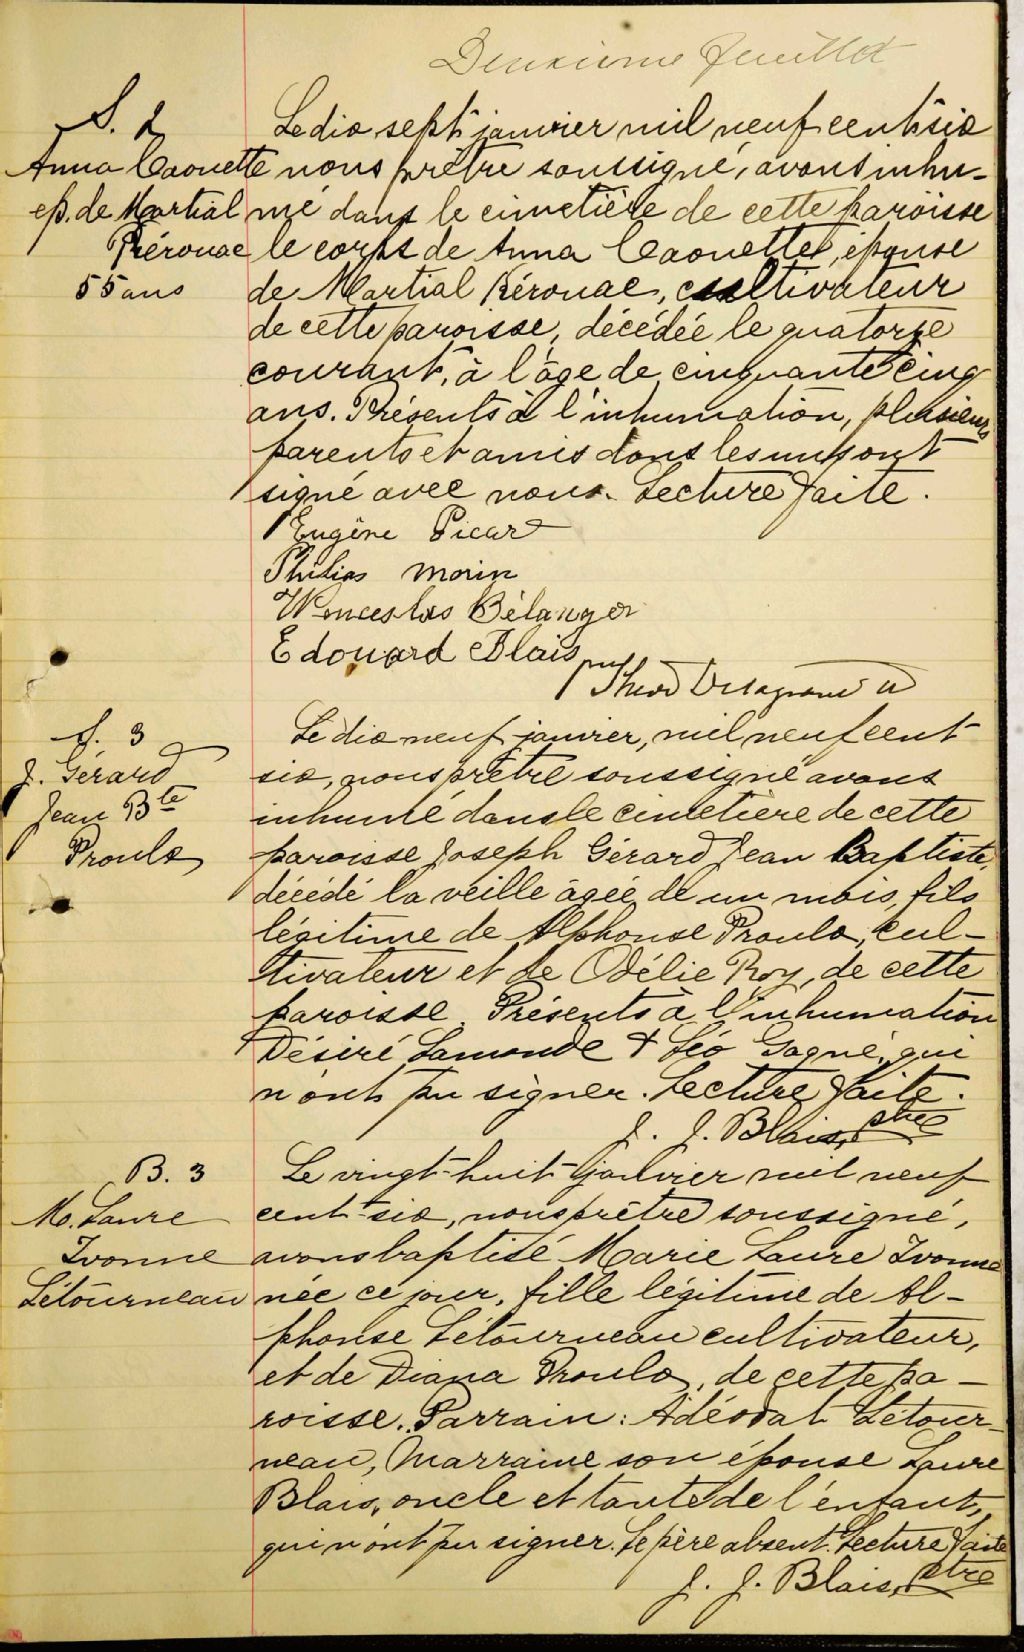 Deuxième feuillet
S. 2
Anna Caouette
ép. de Martial
Kérouac
55 ans
Le dix sept janvier mil neuf cent six
nous prêtre soussigné, avons inhu-
mé dans le cimetière de cette paroisse
le corps de Anna Caouette, épouse
de Martial Kérouac, cultivateur
de cette paroisse, décédée le quatorze
courant, à l'âge de cinquante cinq
ans. Présents à l'inhumation, plusieurs
parents et amis dont les uns ont
signé avec nous. Lecture faite.
Eugène Picard
Philias Morin
Wenceslas Bélanger
Edouard Blais
S. 3
J. Gérard
Jean Bte
Proulx
Le dix neuf janvier, mil neuf cent
six, nous prêtre soussigné avons
inhumé dans le cimetière de cette
paroisse Joseph Gérard Jean Baptiste,
décédé la veille âgée de un mois, fils
légitime de Alphonse Proulx, cul-
tivateur et de Odélie Roy, de cette
paroisse. Présents à l'inhumation
Désiré Lamonde & Léo Gagné, qui
n'ont pu signer. Lecture faite.
J. J. Blais, ptre
B. 3
M. Laure
Ivonne
Létourneau
Le vingt-huit janvier mil neuf
cent-six, nous prêtre soussigné,
avons baptisé Marie Laure Ivonne
née ce jour, fille légitime de Al-
phonse Létourneau cultivateur,
et de Diana Proulx, de cette pa-
roisse. Parrain: Adéodat Létour-
neau, Marraine son épouse Laure
Blais, oncle et tante de l'enfant,
qui n'ont pu signer. Le père absent. Lecture faite
J. J. Blais, ptre